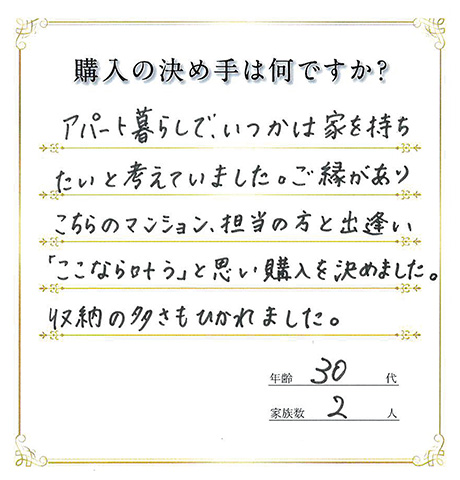 購入の決め手は何ですか?
アパート暮らしで、いつかは家を持ち
たいと考えていました。ご縁があり
こちらのマンション、担当の方と出逢い
「ここなら叶う」と思い購入を決めました。
収納の多さもひかれました。
年齢 30 代
家族数 2 人